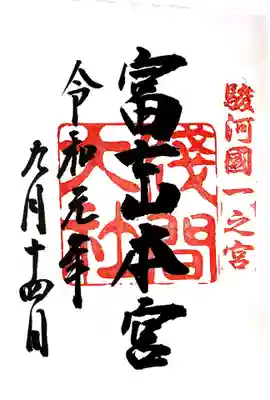 駿河國一之宮
富士山本宮
淺間大社
令和元年
九月十四日